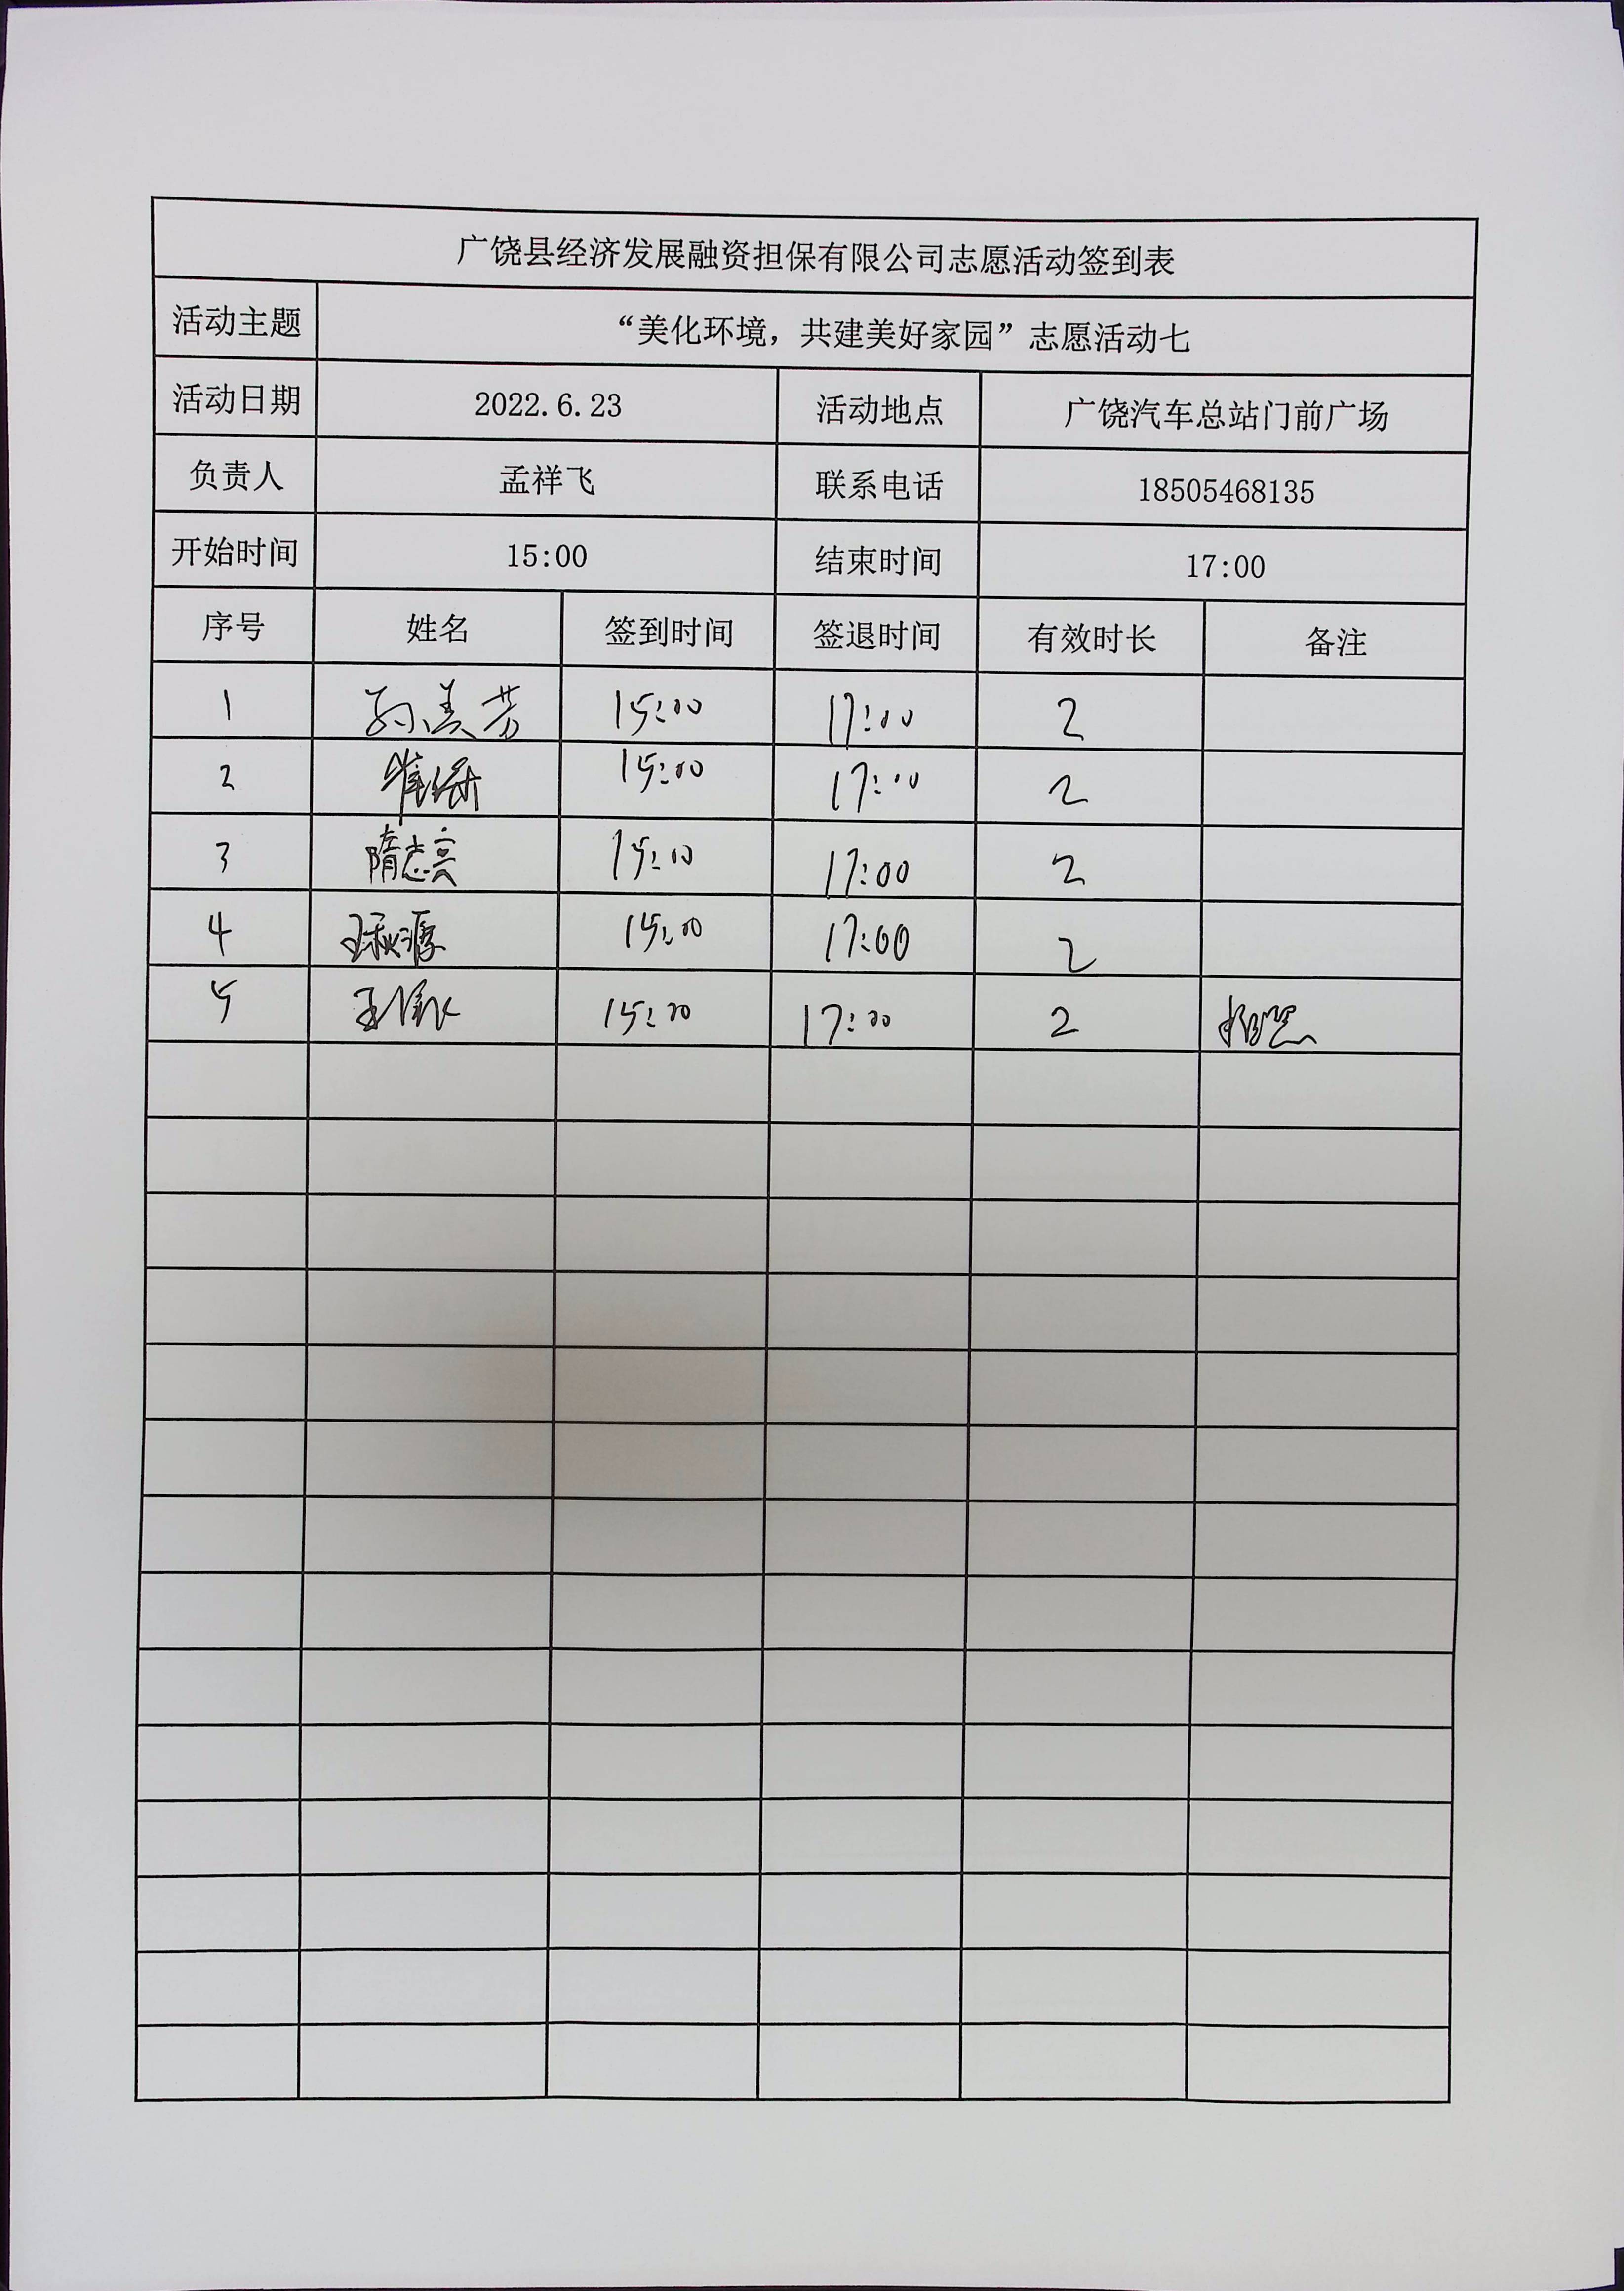 广饶县经济发展融资担保有限公司志愿活动签到表
活动主题 “美化环境，共建美好家园”志愿活动七
活动日期 2022.6.23 活动地点 广饶汽车总站门前广场
负责人 孟祥飞 联系电话 18505468135
开始时间 15:00 结束时间 17:00
序号 姓名 签到时间 签退时间 有效时长 备注
1 孙美芳 15:00 17:00 2
2 15:00 17:00 2
3 隋志亮 15:00 17:00 2
4 王秋源 15:00 17:00 2
5 15:00 17:00 2 拍照